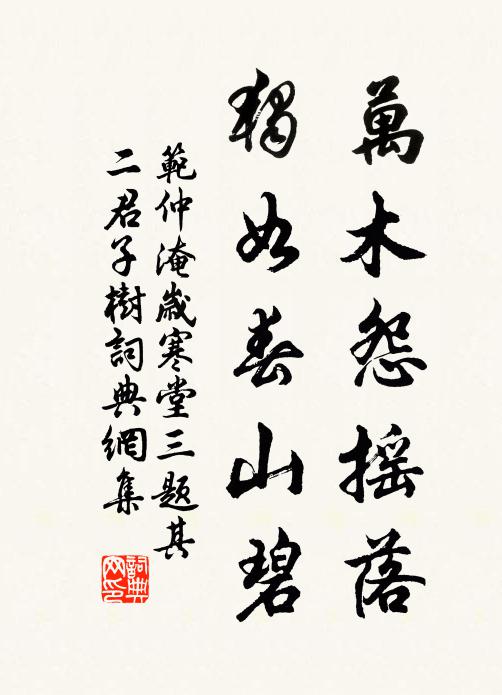 萬木怨摇落
獨如春山碧
範仲淹歲寒堂三题其
二君子樹詞典網集
詞典
网印